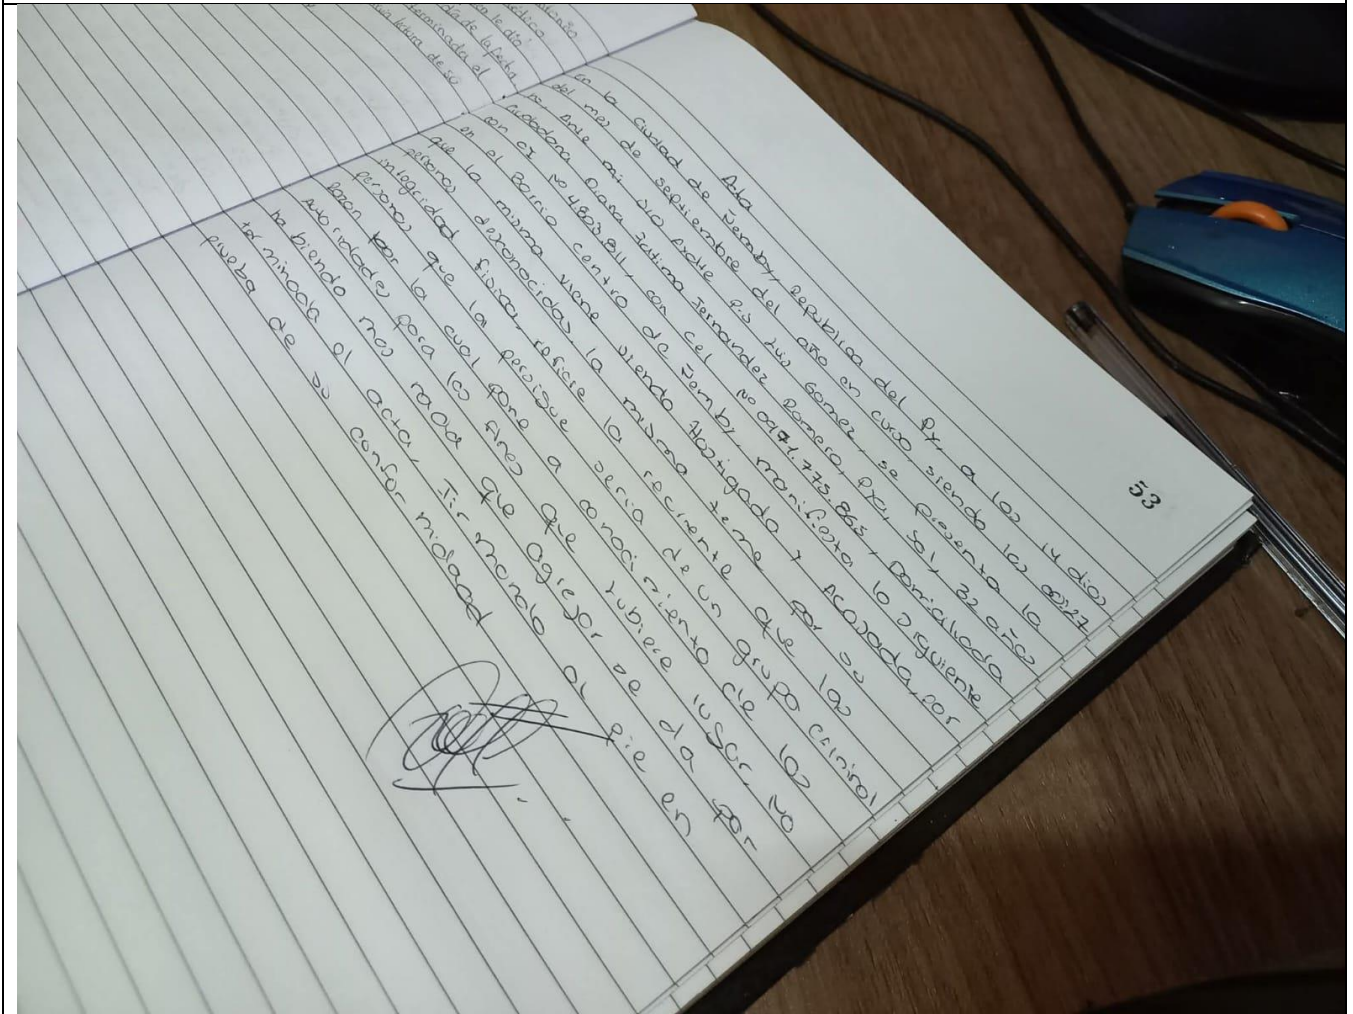 Acta
en la Ciudad de Ñemby, Republica del Py, a los 14 dias
del mes de septiembre del año en curso siendo las 00:27
Ante mi P.S Luis Gomez, se presenta la
Ciudadana Diana Fatima Fernandez Romero, Pya, Sol, 32 años
con CI No 4.803.811, con cel No 0971.775.865, Domiciliada
en el Barrio Centro de Ñemby manifiesta lo siguiente
que la misma viene siendo Hostigada y Acosada, por
personas desconocidas la misma teme por su
integridad fisica, refiere la recurrente que las
personas que la persigue seria de un grupo criminal
Razon por la cual pone a conocimiento de las
Autoridades para los fines que hubiere lugar. No
habiendo mas nada que agregar se da por
terminada el acta, Firmando al pie en
prueba de su conformidad
53